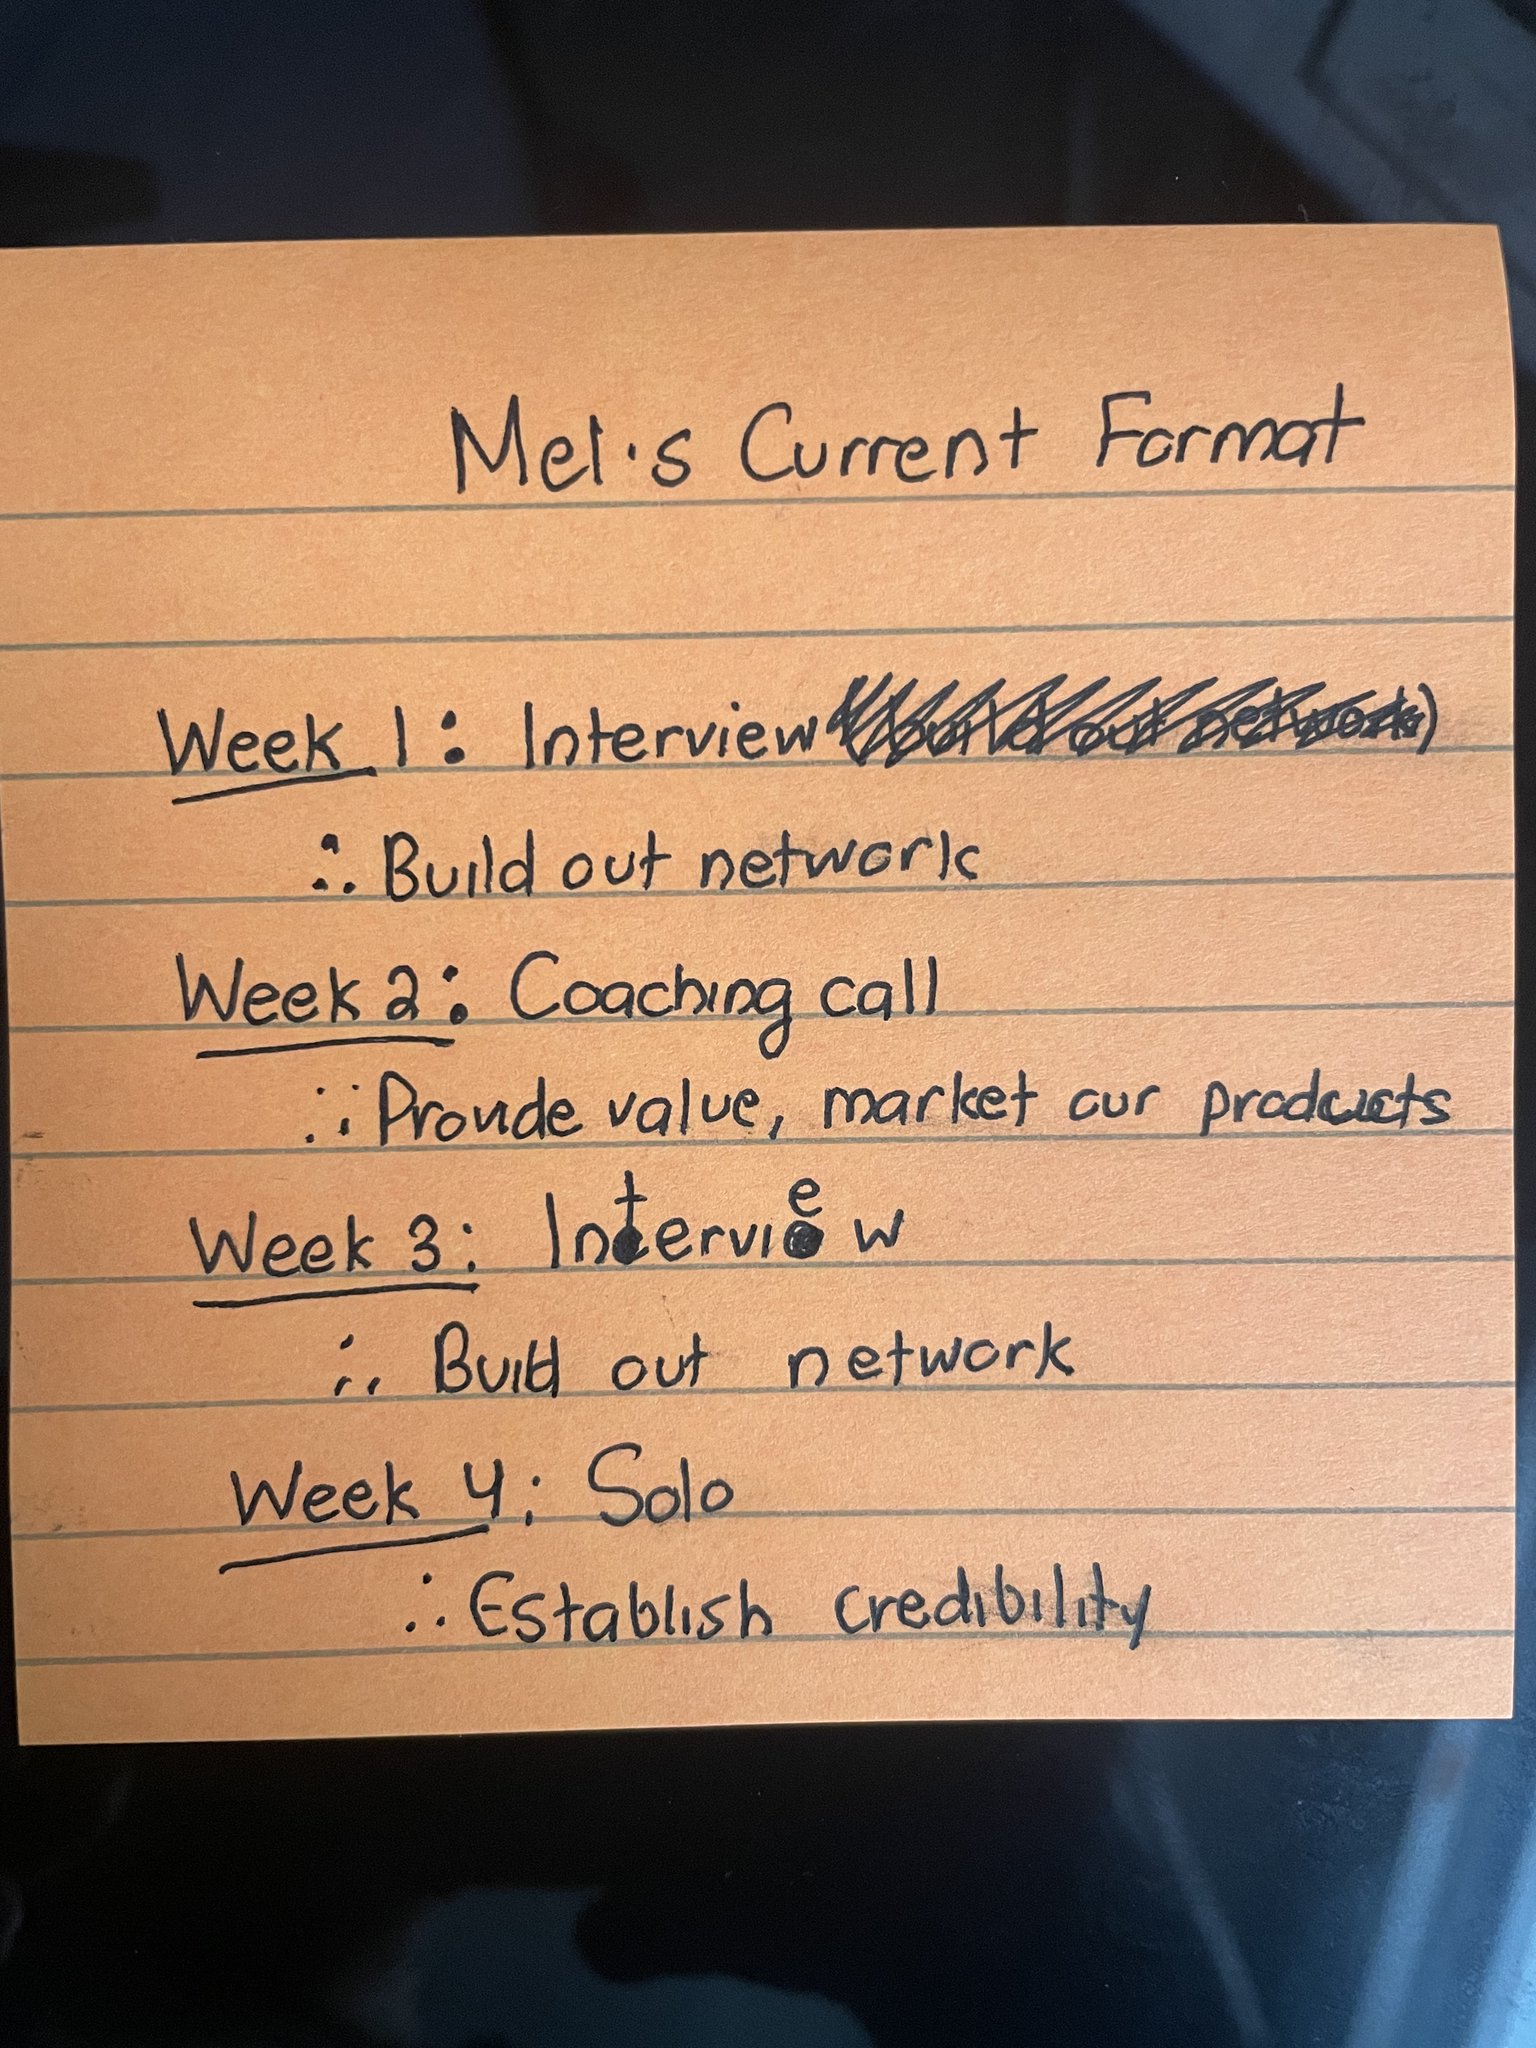 Mel's Current Format
Week 1: Interview (build out network)
∴ Build out network
Week 2: Coaching call
∴ Provide value, market our products
Week 3: Interview
∴ Build out network
Week 4: Solo
∴ Establish credibility